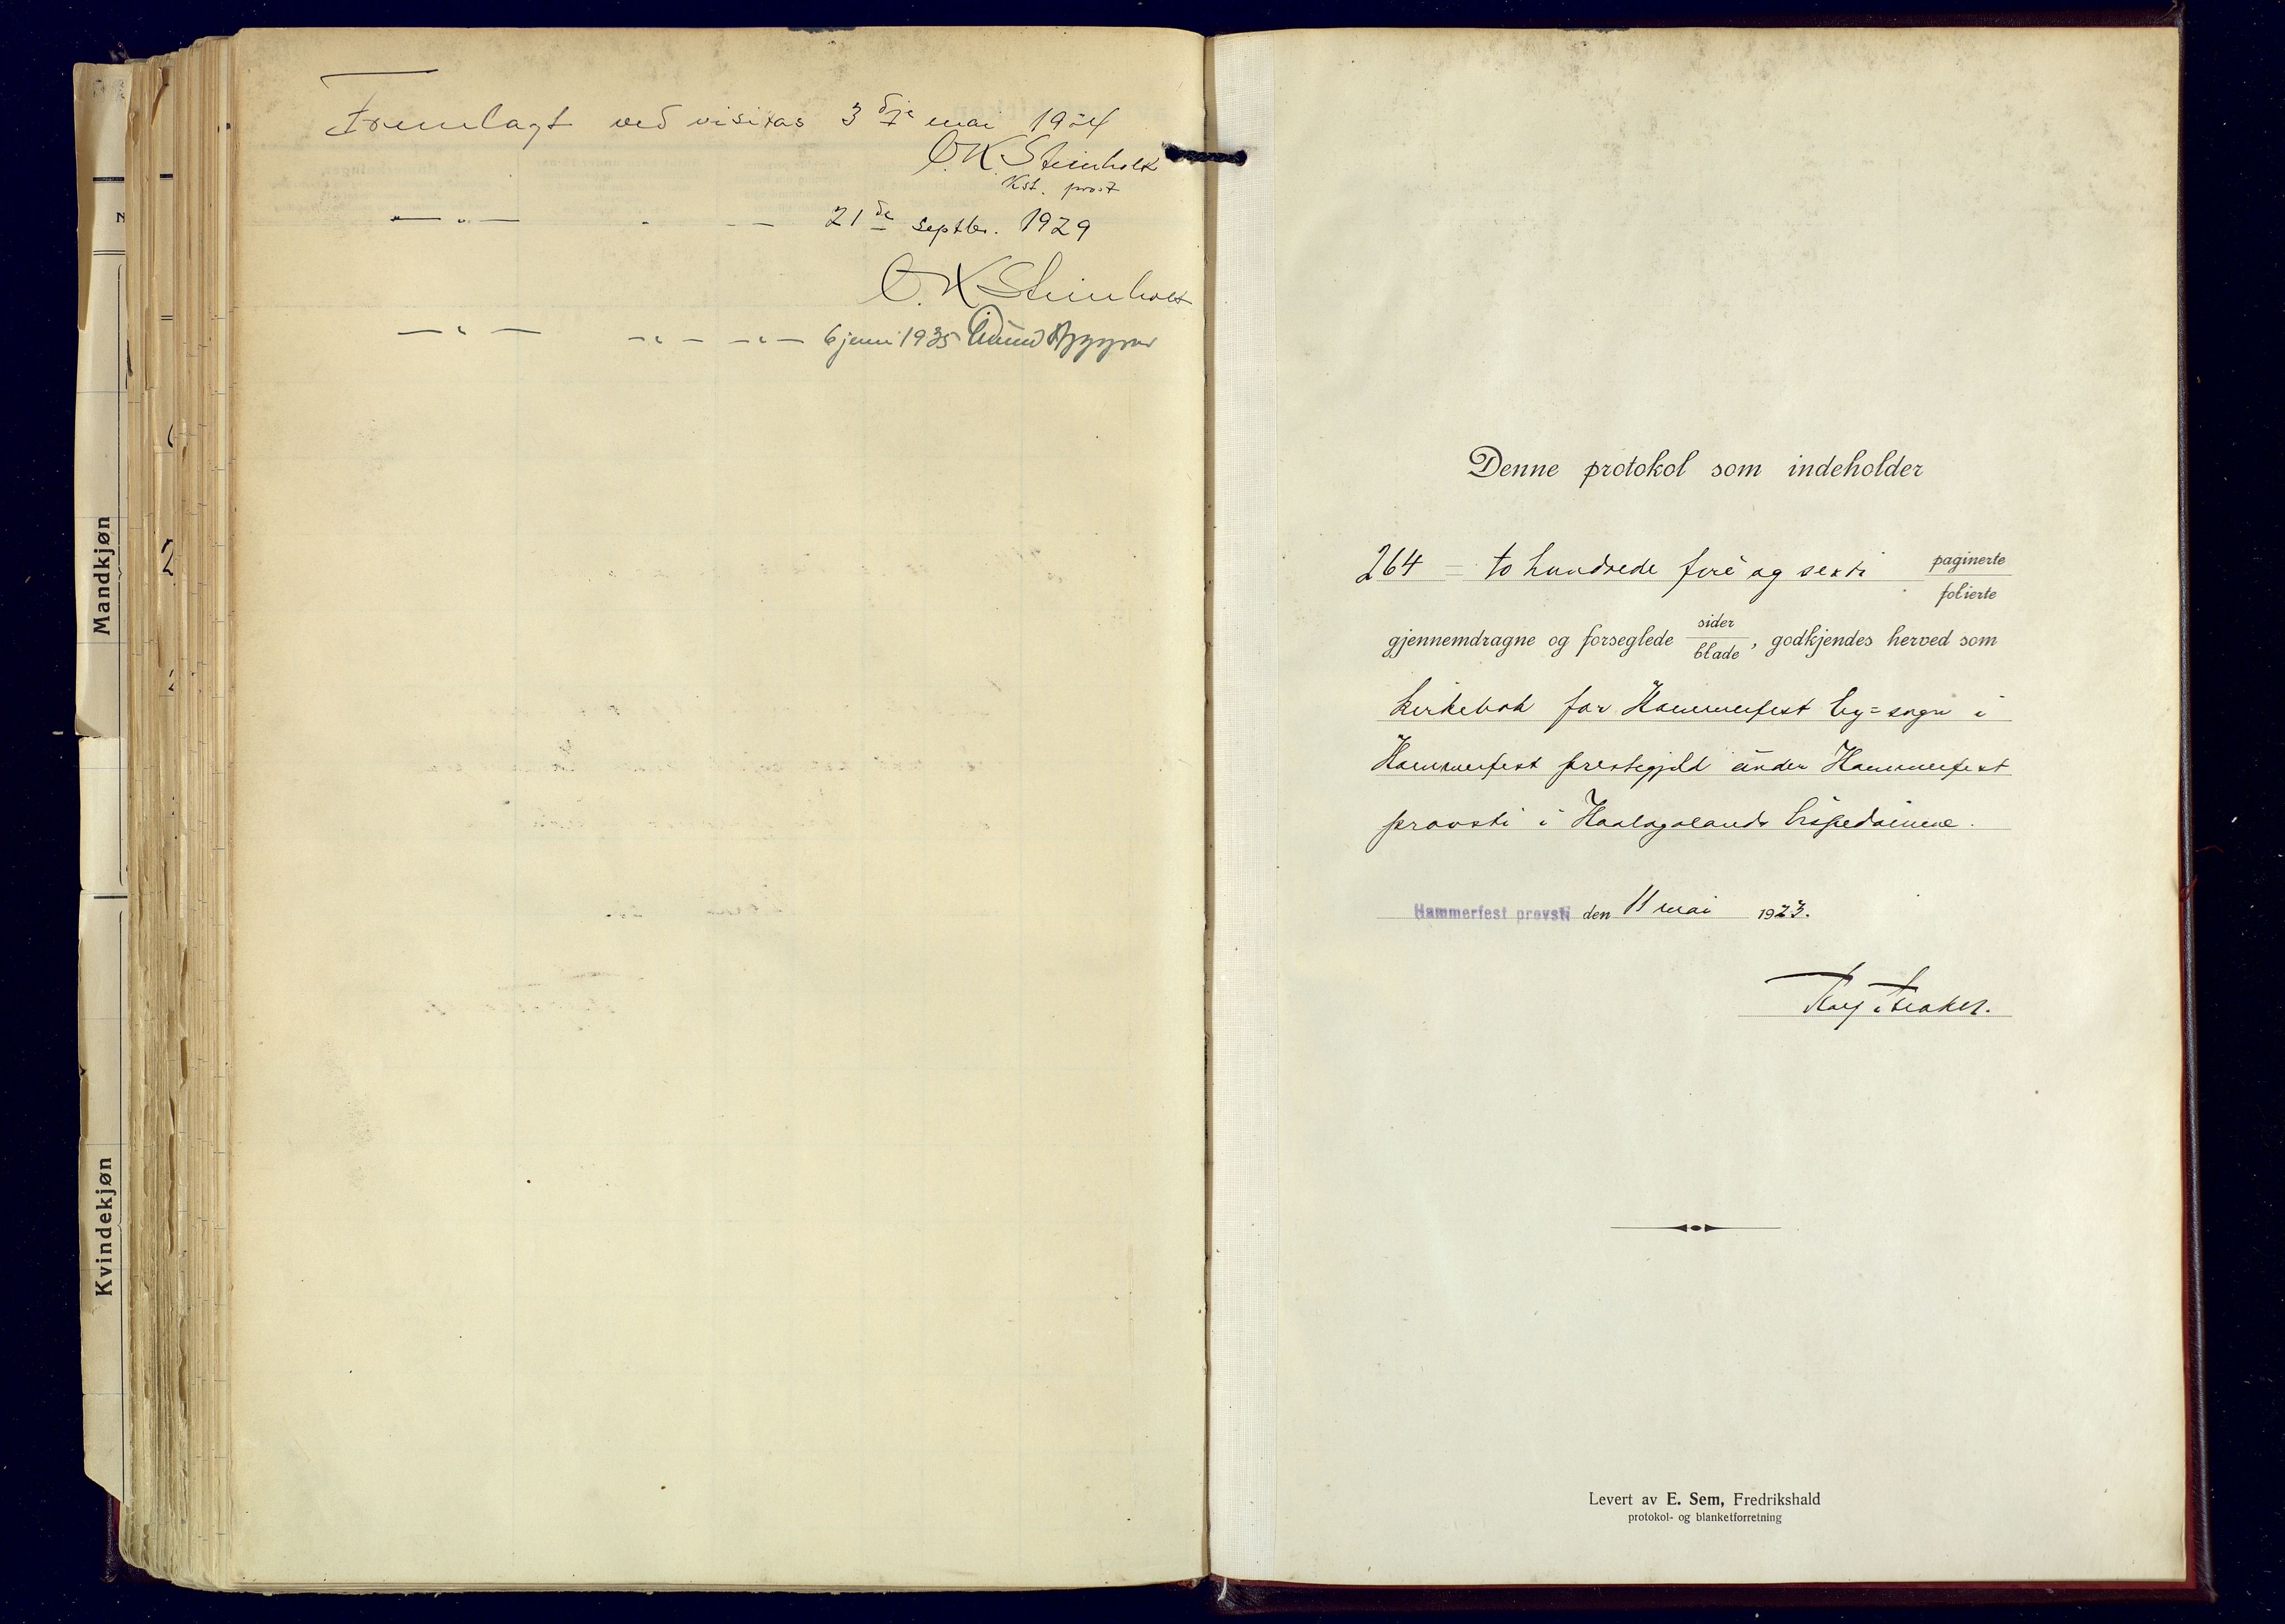 Fremlagt ved visitas 3dje mai 19
O.K. Steinholt
Kst. prost
— " — " — — 21de septbr. 1929
O.K. Steinholt
— " — — " — — " — 6 juni 1935
Mandkjøn
Kvindekjøn
Denne protokol som indeholder
264 = to hundrede fire og sexti paginerte
folierte
gjennemdragne og forseglede sider
blade, godkjendes herved som
kirkebok for Hammerfest by=sogn i
Hammerfest prestegjeld under Hammerfest
provsti i Haalogalands bispedømme.
Hammerfest provsti den 11 mai 1923.
Levert av E. Sem, Fredrikshald
protokol- og blanketforretning